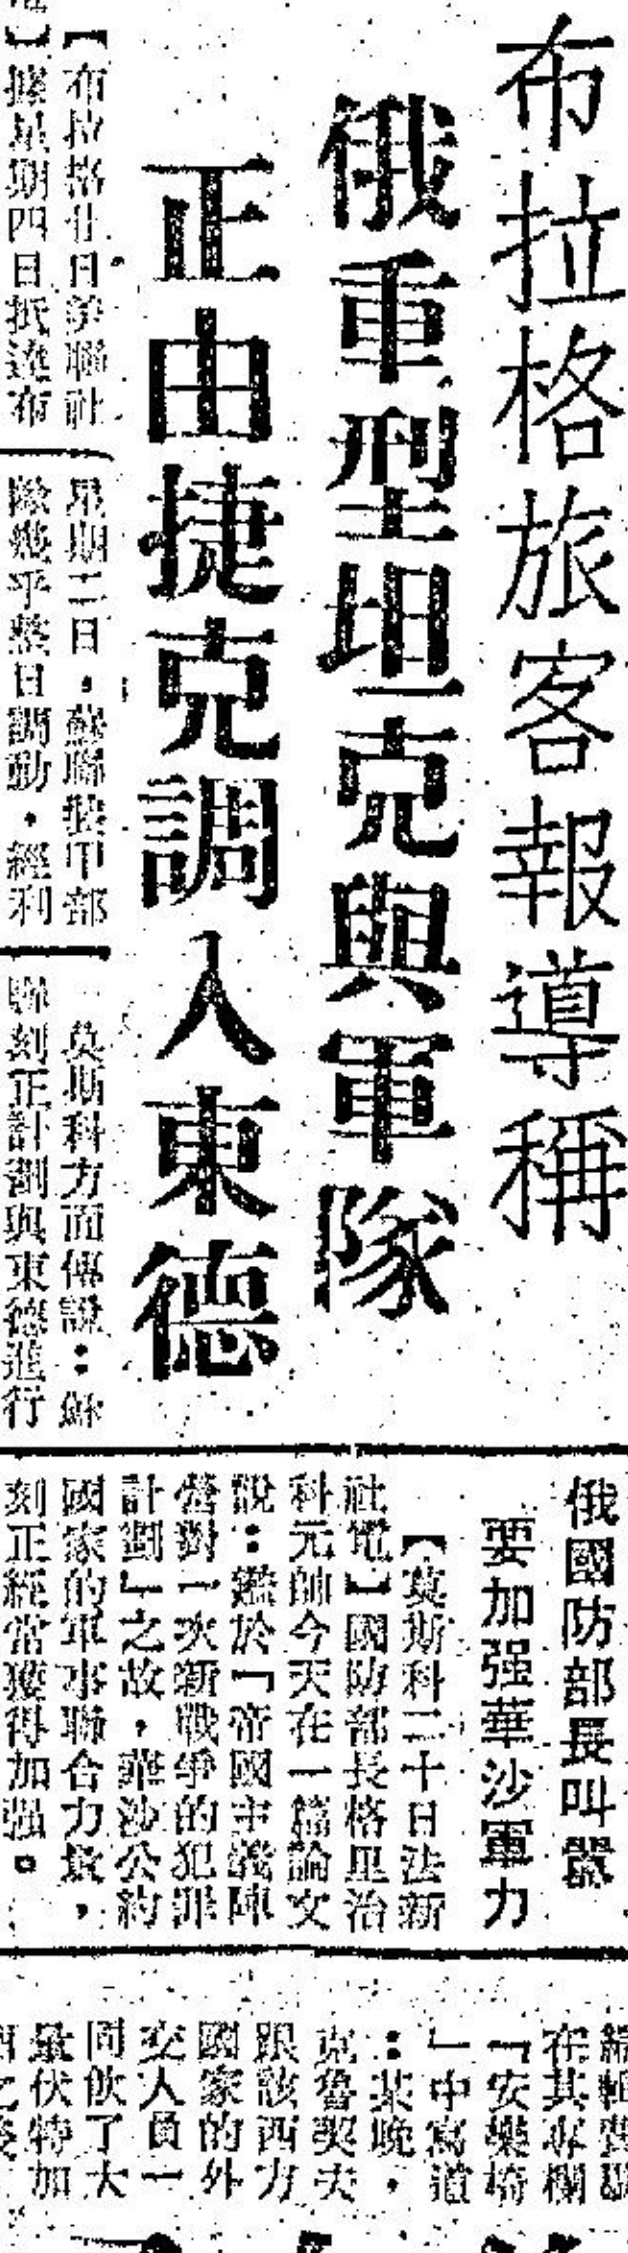 布拉格旅客報導稱
俄重型坦克與軍隊
正由捷克調入東德
【布拉格廿日美聯社
電】據星期四日抵達布
星期二日，蘇聯裝甲部
隊幾乎整日調動，經利
莫斯科方面傳說：蘇
聯刻正計劃與東德進行
俄國防部長叫囂
要加强華沙軍力
【莫斯科二十日法新
社電】國防部長格里治
科元帥今天在一篇論文
說：鑑於「帝國主義陣
營對一次新戰爭的犯罪
計劃」之故，華沙公約
國家的軍事聯合力量，
刻正經常獲得加强。
在其專欄
「安樂椅
」中寫道
：某晚，
克魯契夫
跟該西方
國家的外
交人員一
同飲了大
量伏特加